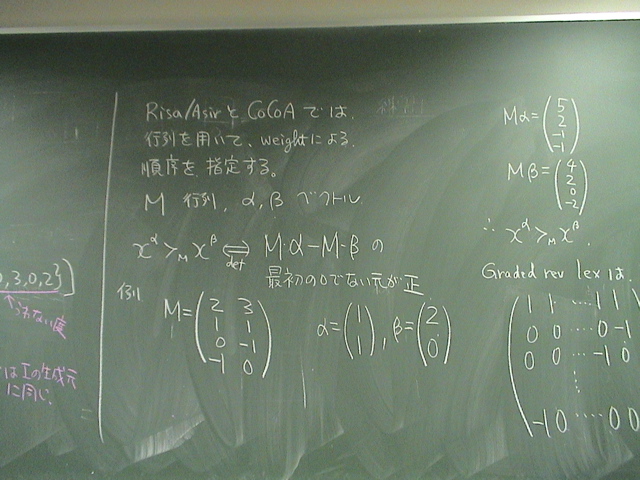 0,3,0,2}]
は I の生成元
に同じ.
Risa/Asir と CoCoA では,
行列を用いて, weight による
順序を指定する。
M 行列, α, β ベクトル
x^α >_M x^β ⇔ M·α − M·β の
def
最初の 0 でない元が正
例
M = (2 3; 1 1; 0 -1; -1 0) α = (1; 1), β = (2; 0)
Mα = (5; 2; -1; -1)
Mβ = (4; 2; 0; -2)
∴ x^α >_M x^β.
Graded rev lex は.
1 1 ..... 1 1
0 0 .... 0 -1
0 0 ... -1 0
⋮
-1 0 ..... 0 0